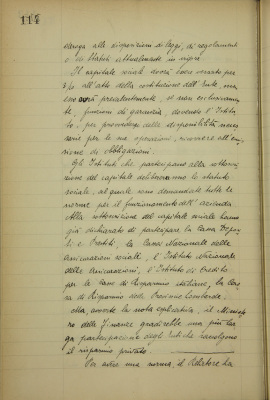 114
deroga alle disposizioni di legge, di regolamenti
o di Statuti attualmente in vigore.
Il capitale sociale dovrà esser versato per
3/10 all'atto della costituzione dell'Ente, ma
esso avrà prevalentemente, se non esclusivamen
te, funzioni di garanzia, dovendo l'Istitu
to, per procurarsi delle disponibilità neces
sarie per le sue operazioni, ricorrere all'emis
sione di obbligazioni.
Gli Istituti che partecipano alla sottoscri
zione del capitale delibereranno lo statuto
sociale, al quale sono demandate tutte le
norme per il funzionamento dell'azienda.
Alla sottoscrizione del capitale sociale hanno
già dichiarato di partecipare la Cassa Deposi
ti e Prestiti, la Cassa Nazionale delle
Assicurazioni sociali, l'Istituto Nazionale
delle Assicurazioni, l'Istituto di Credito
per le Casse di Risparmio italiane, la Cassa
di Risparmio delle Provincie Lombarde.
Ma, avverte la nota esplicativa, il Ministe
ro delle Finanze gradirebbe una più lar
ga partecipazione degli Enti che raccolgono
il risparmio privato.
Per altra una norma, il Relatore ha